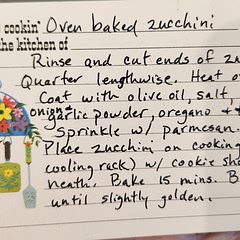 cookin' Oven baked zucchini
the kitchen of
Rinse and cut ends of
Quarter lengthwise. Heat
Coat with olive oil, salt,
onion garlic powder, oregano +
Sprinkle w/ parmesan.
Place zucchini on cooking
cooling rack) w/ cookie
neath. Bake 15 mins.
until slightly golden.